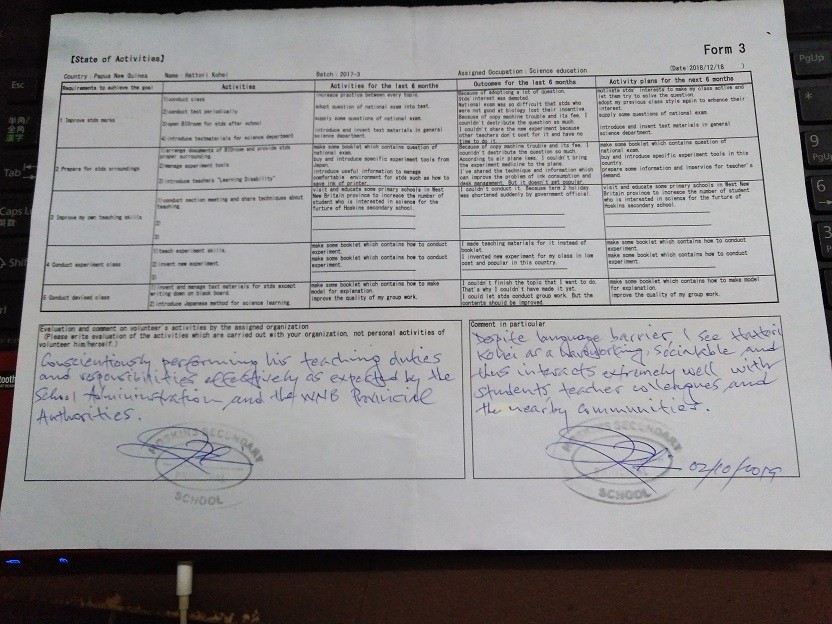 Form 3
[State of Activities]
Country : Papua New Guinea Name : Hattori Kohei Batch : 2017-3 Assigned Occupation : Science education (Date:2018/12/18 )
Requirements to achieve the goal Activities Activities for the last 6 months Outcomes for the last 6 months Activity plans for the next 6 months
1 Improve stds marks
1)conduct class
2)conduct test periodically
3)open BIGroom for stds after school
4)introduce textmaterials for science department
increase practice between every topic.
adopt question of national exam into test.
supply some questions of national exam.
introduce and invent test materials in general
science department.
Because of adoptiong a lot of question,
Stds' interest was demoted.
National exam was so difficult that stds who
were not good at biology lost their incentive.
Because of copy machine trouble and its fee, I
couldn't distribute the question as much.
I couldn't share the new experiment because
other teachers don't cost for it and have no
time to do it.
motivate stds' interests to make my class active and
let them try to solve the question.
adopt my previous class style again to enhance their
interest.
supply some questions of national exam.
introduce and invent test materials in general
science department.
2 Prepare for stds surroundings
1)arrange documents of BIGroom and provide stds
proper surrounding
2)manage experiment tools
3)introduce teachers "Learning Disability"
make some booklet which contains question of
national exam.
buy and introduce specific experiment tools from
Japan.
introduce useful information to manage
comfortable environment for stds such as how to
save ink of printer.
Because of copy machine trouble and its fee, I
couldn't distribute the question so much.
According to air plane laws, I couldn't bring
the experiment medicine to the plane.
I've shared the technique and information which
can improve the problem of ink consumption and
desk management. But it doesn't get popular.
make some booklet which contains question of
national exam.
buy and introduce specific experiment tools in this
country.
prepare some information and inservice for teacher's
demand.
3 Improve my own teaching skills
1)conduct section meeting and share techniques about
teaching
2)
3)
visit and educate some primary schools in West
New Britain province to increase the number of
student who is interested in science for the
furture of Hoskins secondary school.
I couldn't conduct it. Because term 2 holiday
was shortened suddenly by government official.
visit and educate some primary schools in West New
Britain province to increase the number of student
who is interested in science for the furture of
Hoskins secondary school.
4 Conduct experiment class
1)teach experiment skills.
2)invent new experiment.
3)
make some booklet which contains how to conduct
experiment.
make some booklet which contains how to conduct
experiment.
I made teaching materials for it instead of
booklet.
I invented new experiment for my class in low
cost and popular in this country.
make some booklet which contains how to conduct
experiment.
make some booklet which contains how to conduct
experiment.
5 Conduct devised class
1)invent and manage text materials for stds except
writing down on black board.
2)introduce Japanese method for science learning
make some booklet which contains how to make
model for explanation.
improve the quality of my group work.
I couldn't finish the topic that I want to do.
That's why I couldn't have made it yet.
I could let stds conduct group work. But the
contents should be improved.
make some booklet which contains how to make model
for explanation.
improve the quality of my group work.
Evaluation and comment on volunteer's activities by the assigned organization
(Please write evaluation of the activities which are carried out with your organization, not personal activities of
volunteer him/herself.)
Conscientiously performing his teaching duties
and responsibilities effectively as expected by the
School Administration and the WNB Provincial
Authorities.
HOSKINS SECONDARY
SCHOOL
Comment in particular
Despite language barrier, I see Hattori
Kohei as a hardworking, sociatable, and
thus interacts extremely well with
students, teacher colleagues and
the nearby communities.
HOSKINS SECONDARY
SCHOOL
02/10/2019
Esc
半角/
全角
漢字
Tab
Caps L
Shift
PgUp
9
PgU
6
3